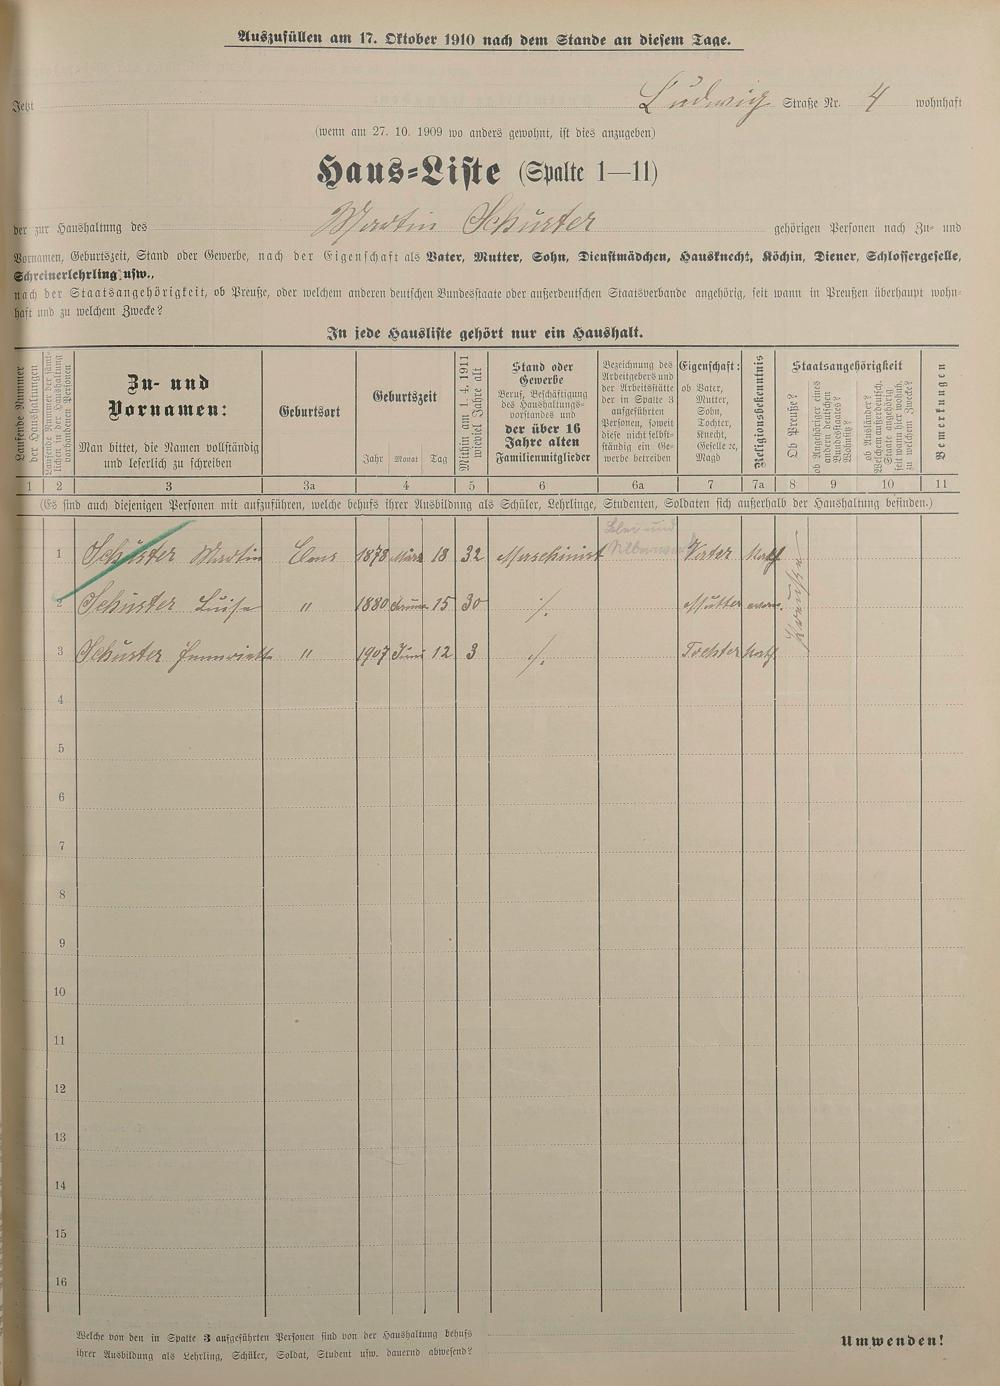 Auszufüllen am 17. Oktober 1910 nach dem Stande an diesem Tage.
Jetzt Ludwig Straße Nr. 4 wohnhaft
(wenn am 27. 10. 1909 wo anders gewohnt, ist dies anzugeben)
Haus-Liste (Spalte 1—11)
der zur Haushaltung des Martin Schuster gehörigen Personen nach Zu- und
Vornamen, Geburtszeit, Stand oder Gewerbe, nach der Eigenschaft als Vater, Mutter, Sohn, Dienstmädchen, Hausknecht, Köchin, Diener, Schlossergeselle,
Schreinerlehrling usw.,
nach der Staatsangehörigkeit, ob Preuße, oder welchem anderen deutschen Bundesstaate oder außerdeutschen Staatsverbande angehörig, seit wann in Preußen überhaupt wohn-
haft und zu welchem Zwecke?
In jede Hausliste gehört nur ein Haushalt.
Laufende Nummer
der Haushaltungen
Laufende Nummer der sämt-
lichen in der Haushaltung
vorhandenen Personen
Zu- und
Vornamen:
Man bittet, die Namen vollständig
und leserlich zu schreiben
Geburtsort
Geburtszeit
Jahr Monat Tag
Mithin am 1. 4. 1911
wieviel Jahre alt
Stand oder
Gewerbe
Beruf, Beschäftigung
des Haushaltungs-
vorstandes und
der über 16
Jahre alten
Familienmitglieder
Bezeichnung des
Arbeitgebers und
der Arbeitsstätte
der in Spalte 3
aufgeführten
Personen, soweit
diese nicht selbst-
ständig ein Ge-
werbe betreiben
Eigenschaft:
ob Vater,
Mutter,
Sohn,
Tochter,
Knecht,
Geselle ꝛc,
Magd
Religionsbekenntnis
Staatsangehörigkeit
Ob Preuße?
ob Angehöriger eines
andern deutschen
Bundesstaates?
Wohnsitz?
ob Ausländer?
Welchem außerdeutsch.
Staate angehörig
seit wann hier wohnh.
zu welchem Zwecke?
Bemerkungen
1 2 3 3a 4 5 6 6a 7 7a 8 9 10 11
(Es sind auch diejenigen Personen mit aufzuführen, welche behufs ihrer Ausbildung als Schüler, Lehrlinge, Studenten, Soldaten sich außerhalb der Haushaltung befinden.)
1 Schuster Martin Ems 1878 März 18 32 Maschinist Blei und Vater kath.
2 Schuster Luise " 1880 15 30 ./. Mutter
3 Schuster Henriette " 1907 Juni 12 3 ./. Tochter kath.
Preuße
4
5
6
7
8
9
10
11
12
13
14
15
16
Welche von den in Spalte 3 aufgeführten Personen sind von der Haushaltung behufs
ihrer Ausbildung als Lehrling, Schüler, Soldat, Student usw. dauernd abwesend?
Umwenden!